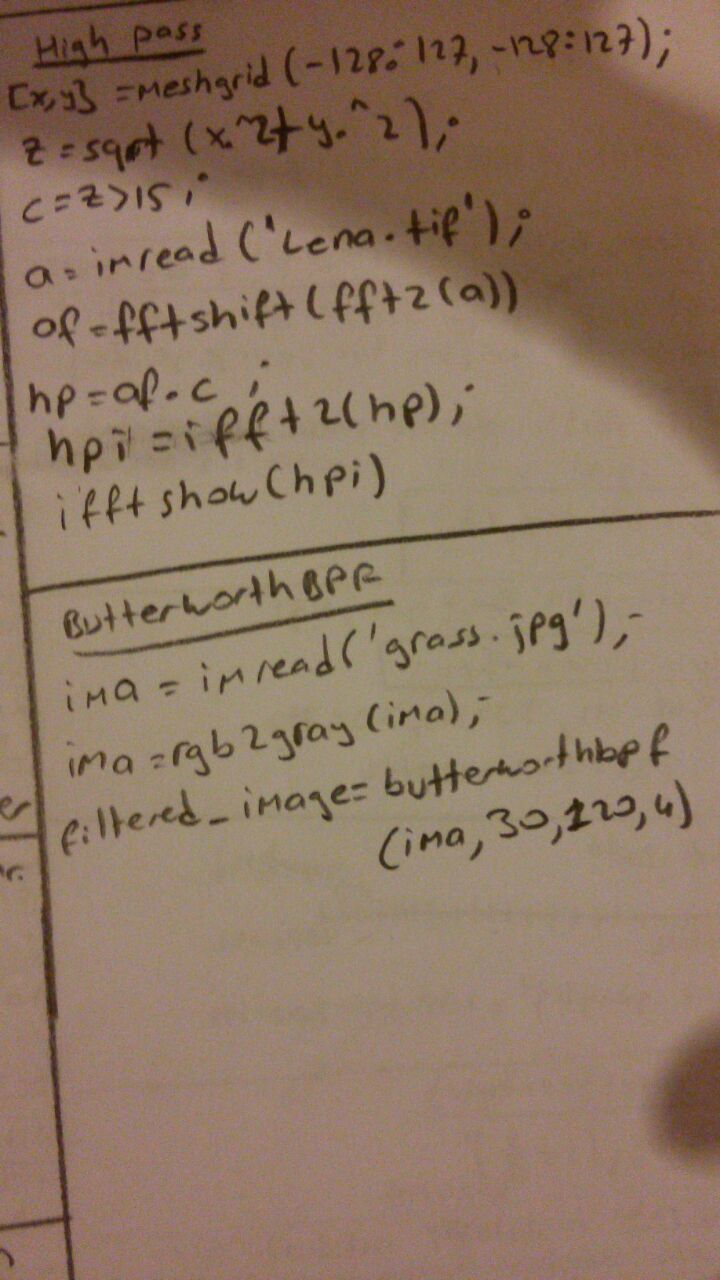 High pass
[x,y] =meshgrid (-128:127, -128:127);
z = sqrt (x.^2+y.^2);
c=z>15;
a = imread ('Lena.tif');
af=fftshift(fft2(a))
hp=af.c;
hpi=ifft2(hp);
ifftshow(hpi)
Butterworth BPF
ima = imread('grass.jpg');
ima =rgb2gray (ima);
filtered_image= butterworthbpf
(ima, 30,120,4)
er
r.